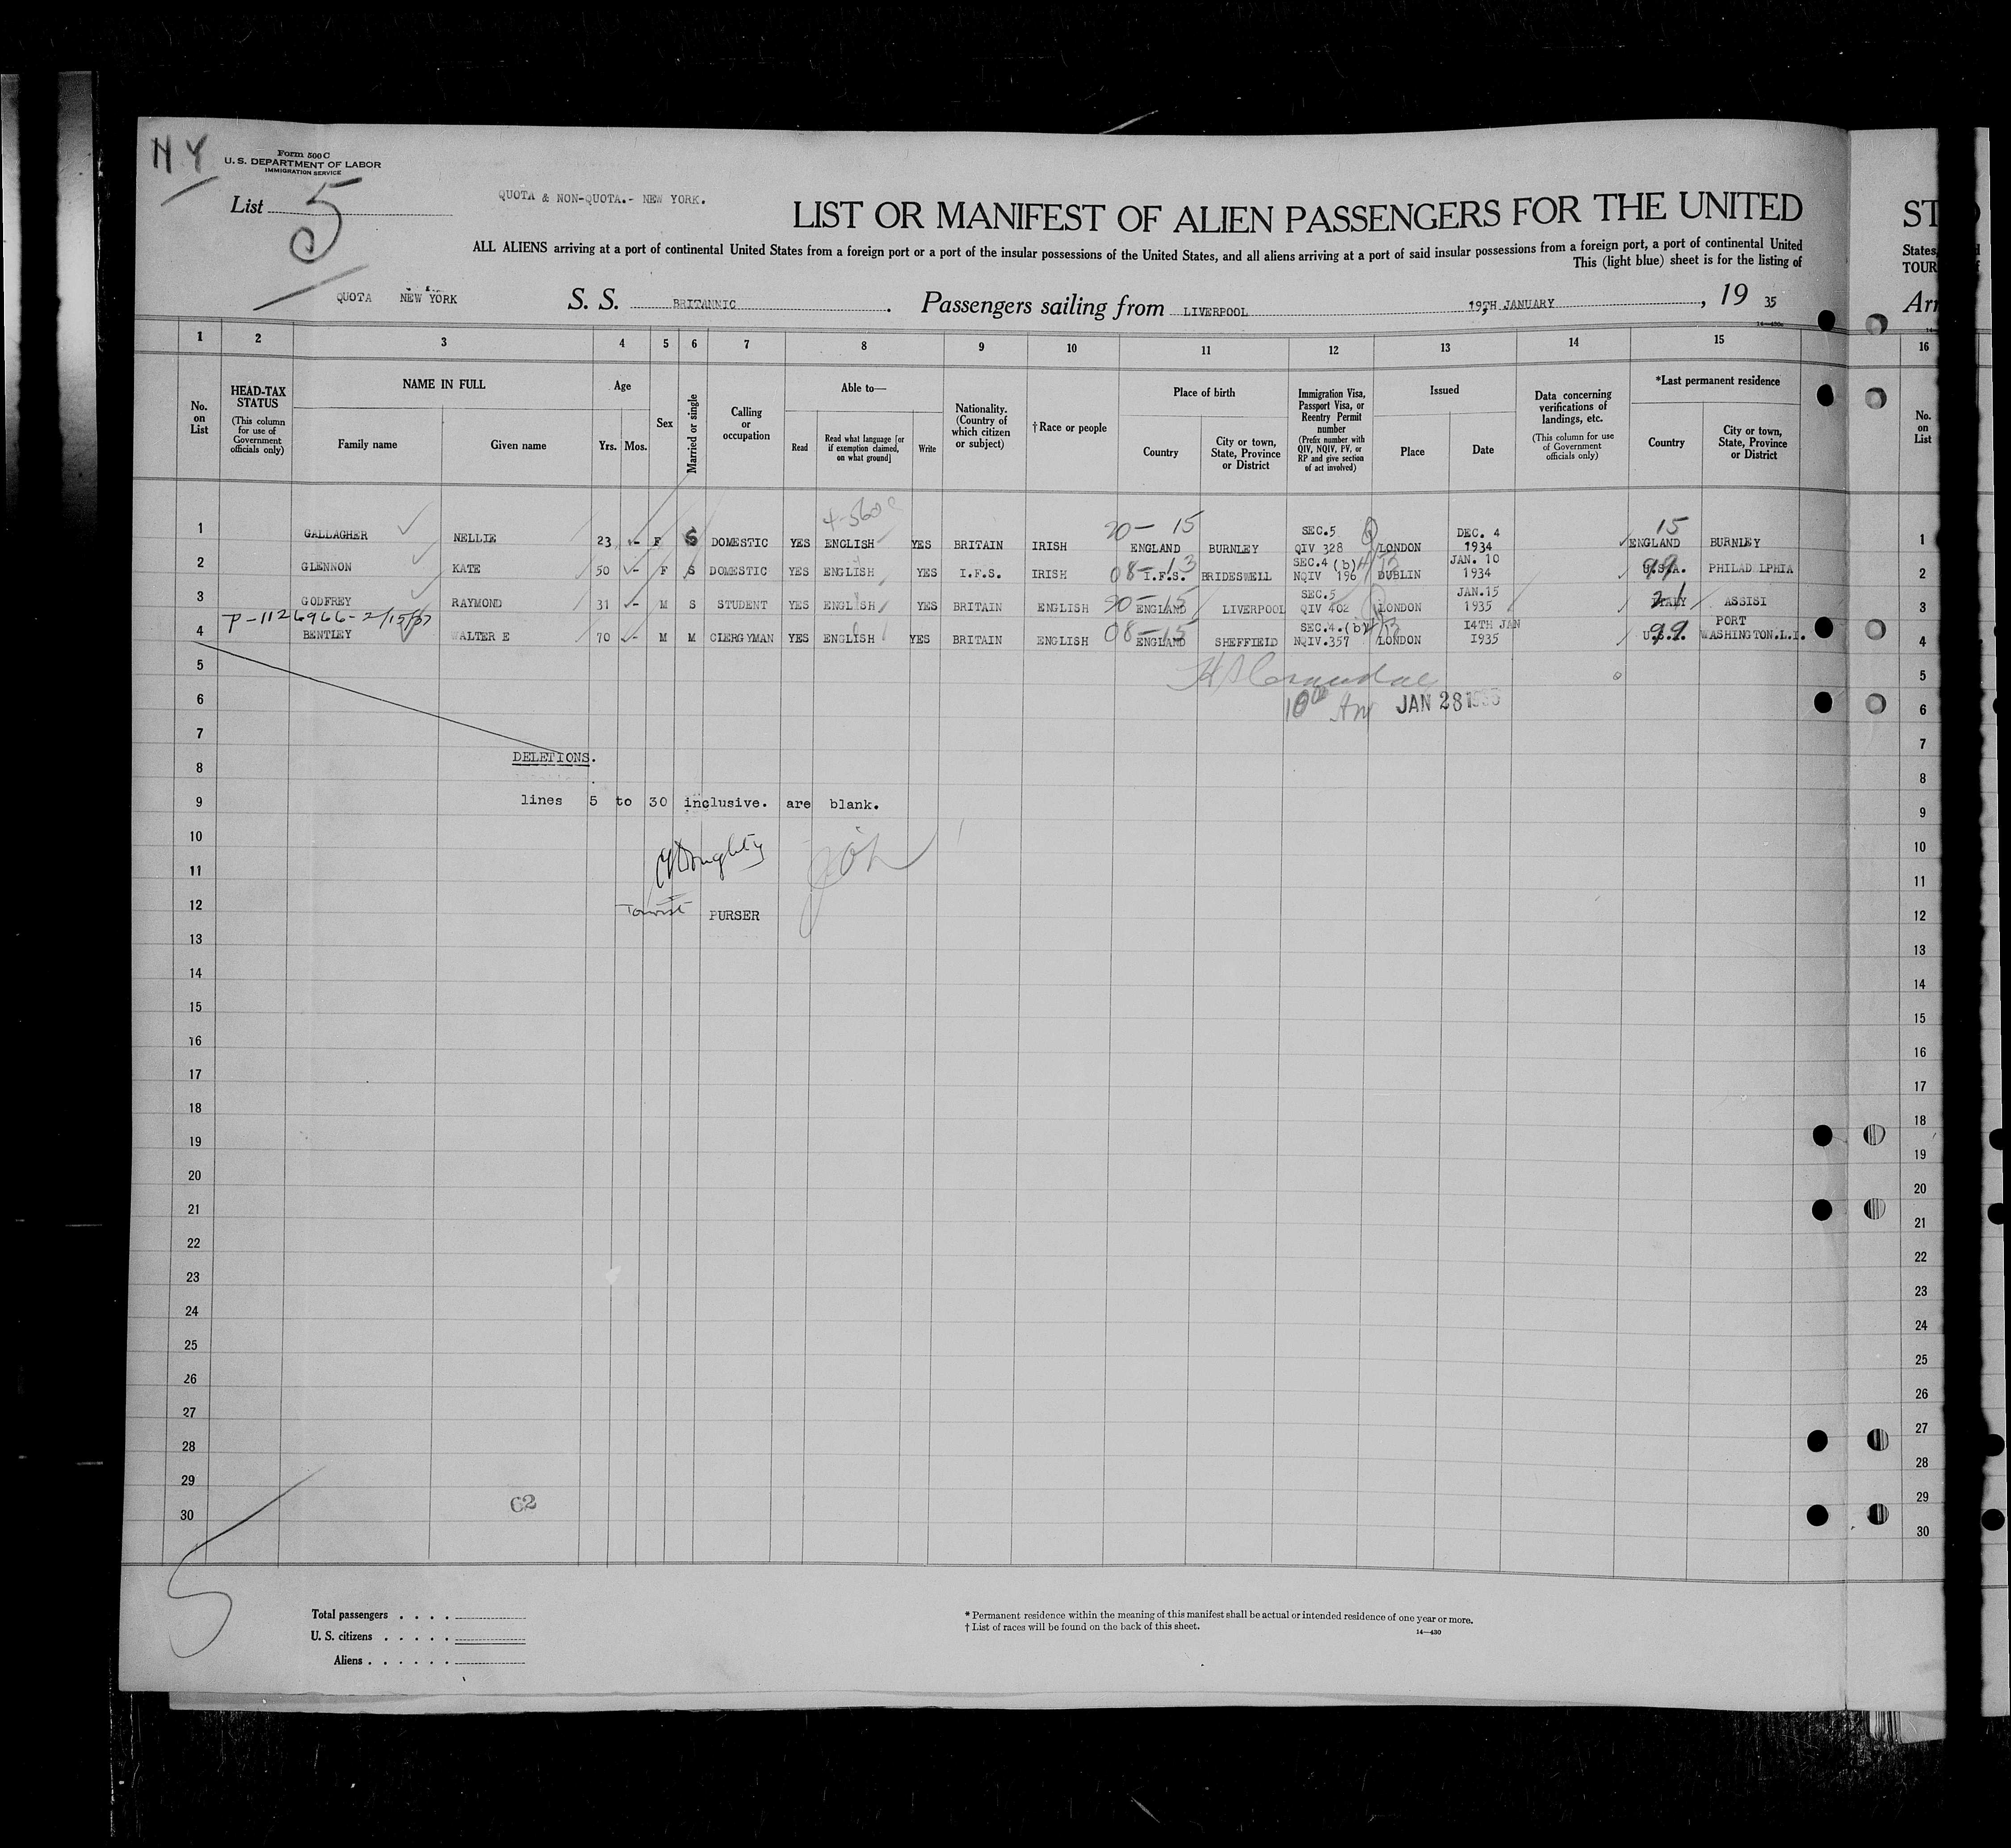 NY
Form 500 C
U. S. DEPARTMENT OF LABOR
IMMIGRATION SERVICE
List 5
QUOTA & NON-QUOTA.- NEW YORK.
LIST OR MANIFEST OF ALIEN PASSENGERS FOR THE UNITED
ST
ALL ALIENS arriving at a port of continental United States from a foreign port or a port of the insular possessions of the United States, and all aliens arriving at a port of said insular possessions from a foreign port, a port of continental United
States,
This (light blue) sheet is for the listing of
TOUR
QUOTA NEW YORK S. S. BRITANNIC . Passengers sailing from LIVERPOOL 19TH JANUARY , 19 35
Arr
1 2 3 4 5 6 7 8 9 10 11 12 13 14 15 16
No. on List
HEAD-TAX STATUS (This column for use of Government officials only)
NAME IN FULL
Family name Given name
Age
Yrs. Mos.
Sex
Married or single
Calling or occupation
Able to—
Read Read what language [or if exemption claimed, on what ground] Write
Nationality. (Country of which citizen or subject)
†Race or people
Place of birth
Country City or town, State, Province or District
Immigration Visa, Passport Visa, or Reentry Permit number (Prefix number with QIV, NQIV, PV, or RP and give section of act involved)
Issued
Place Date
Data concerning verifications of landings, etc. (This column for use of Government officials only)
*Last permanent residence
Country City or town, State, Province or District
No. on List
4-560
20- 15 15
1 GALLAGHER NELLIE 23 - F S DOMESTIC YES ENGLISH YES BRITAIN IRISH ENGLAND BURNLEY SEC.5 QIV 328 LONDON DEC. 4 1934 ENGLAND BURNLEY 1
08-13 99
2 GLENNON KATE 50 - F S DOMESTIC YES ENGLISH YES I.F.S. IRISH I.F.S. BRIDESWELL SEC.4 (b) NQIV 196 DUBLIN JAN. 10 1934 U.S.A. PHILAD LPHIA 2
20-15 21
3 GODFREY RAYMOND 31 - M S STUDENT YES ENGLISH YES BRITAIN ENGLISH ENGLAND LIVERPOOL SEC.5 QIV 402 LONDON JAN.15 1935 ITALY ASSISI 3
P-1126966-2/15/37
08-15 99
4 BENTLEY WALTER E 70 - M M CLERGYMAN YES ENGLISH YES BRITAIN ENGLISH ENGLAND SHEFFIELD SEC.4.(b) NQIV.357 LONDON I4TH JAN I935 U.S.A. PORT WASHINGTON.L.I. 4
5 5
6 10 00 AM JAN 28 1935 6
7 7
DELETIONS.
8 8
9 lines 5 to 30 inclusive. are blank. 9
10 10
Doughty
11 11
12 Tourist PURSER 12
13 13
14 14
15 15
16 16
17 17
18 18
19 19
20 20
21 21
22 22
23 23
24 24
25 25
26 26
27 27
28 28
29 29
62
30 30
5
Total passengers . . . .
U. S. citizens . . . . .
Aliens . . . . . .
* Permanent residence within the meaning of this manifest shall be actual or intended residence of one year or more.
† List of races will be found on the back of this sheet.
14—430